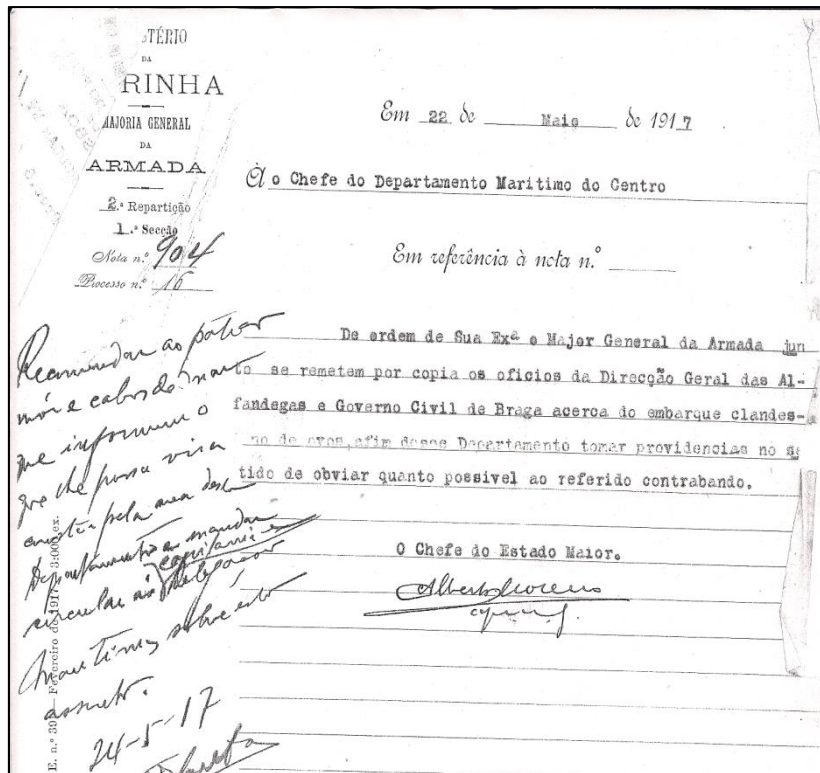 STÉRIO
DA
RINHA
MAJORIA GENERAL
DA
ARMADA
2.ª Repartição
1.ª Secção
Nota n.º 904
Processo n.º 16
Em 22 de Maio de 1917
À o Chefe do Departamento Maritimo do Centro
Em referência à nota n.º
De ordem de Sua Exª o Major General da Armada jun
to se remetem por copia os oficios da Direcção Geral das Al-
fandegas e Governo Civil de Braga acerca do embarque clandes-
no de ovos, afim desse Departamento tomar providencias no se
tido de obviar quanto possivel ao referido contrabando.
O Chefe do Estado Maior.
Alberto Moreno
Recomendar ao patrão
mór e cabos de mar
que informem o
que
pela area deste
Departamento e mandar
circular ás capitanias
Delegacias
Maritimas sobre este
assunto.
24-5-17
E. n.º 39 — Fevereiro de 1917 3:000 ex.